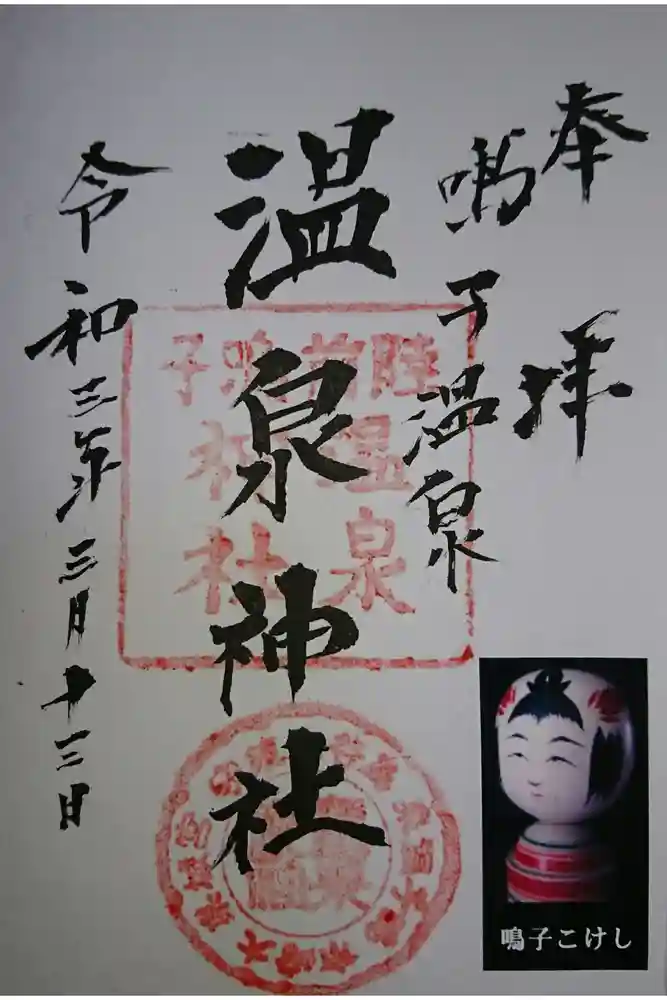 奉拝
鳴子温泉
温泉神社
令和三年三月十三日
陸前
温泉
鳴子
神社
鳴子こけし